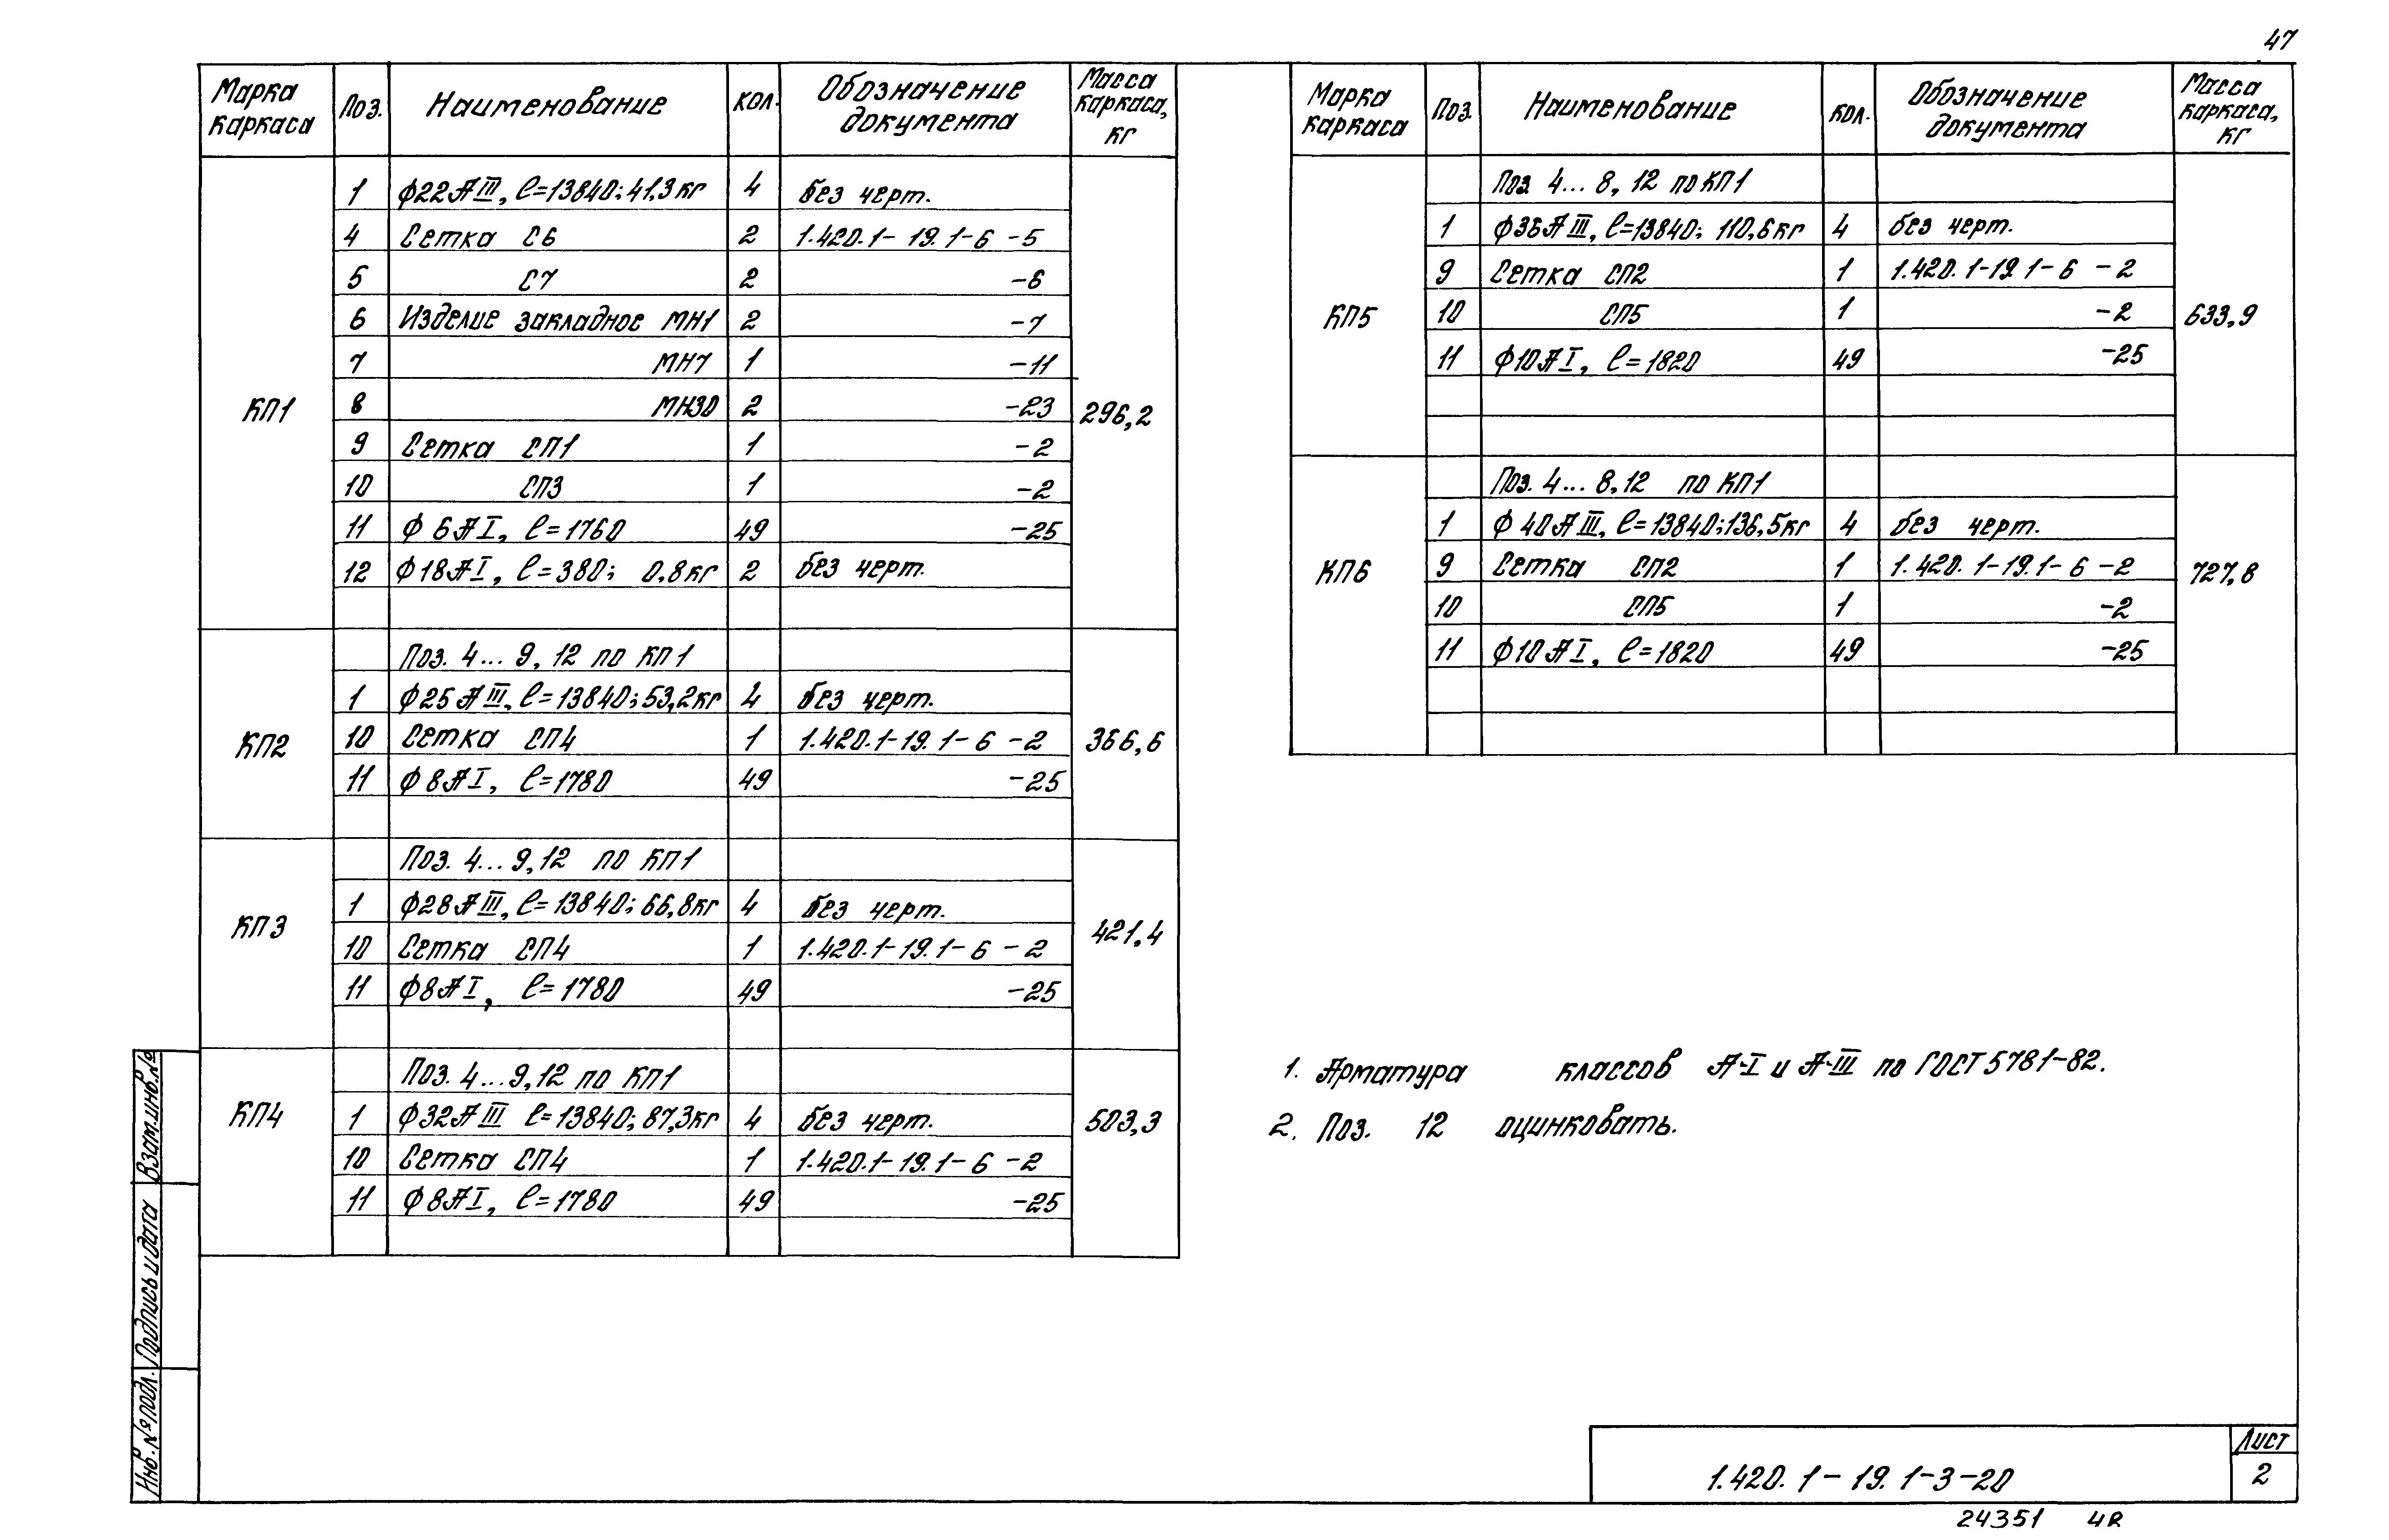 47
Марка каркаса Поз. Наименование кол. Обозначение документа Масса каркаса, кг
КП1 296,2
1 ф22АIII, l=13840; 41,3кг 4 без черт.
4 Сетка С6 2 1.420.1-19.1-6 -5
5 С7 2 -6
6 Изделие закладное МН1 2 -7
7 МН7 1 -11
8 МН30 2 -23
9 Сетка СП1 1 -2
10 СП3 1 -2
11 ф 6АI, l=1760 49 -25
12 ф18АI, l=380; 0,8кг 2 без черт.
КП2 366,6
Поз. 4...9, 12 по КП1
1 ф25АIII, l=13840; 53,2кг 4 без черт.
10 Сетка СП4 1 1.420.1-19.1-6 -2
11 ф8АI, l=1780 49 -25
КП3 421,4
Поз. 4...9,12 по КП1
1 ф28АIII, l=13840; 66,8кг 4 без черт.
10 Сетка СП4 1 1.420.1-19.1-6 -2
11 ф8АI, l=1780 49 -25
КП4 503,3
Поз. 4...9,12 по КП1
1 ф32АIII l=13840; 87,3кг 4 без черт.
10 Сетка СП4 1 1.420.1-19.1-6 -2
11 ф8АI, l=1780 49 -25
Марка каркаса Поз. Наименование кол. Обозначение документа Масса каркаса, кг
КП5 633,9
Поз. 4...8, 12 по КП1
1 ф36АIII, l=13840; 110,6кг 4 без черт.
9 Сетка СП2 1 1.420.1-19.1-6 -2
10 СП5 1 -2
11 ф10АI, l=1820 49 -25
КП6 727,8
Поз. 4...8,12 по КП1
1 ф 40АIII, l=13840; 136,5кг 4 без черт.
9 Сетка СП2 1 1.420.1-19.1-6 -2
10 СП5 1 -2
11 ф10АI, l=1820 49 -25
1. Арматура классов А-I и А-III по ГОСТ 5781-82.
2. Поз. 12 оцинковать.
Взам.инв.№
Подпись и дата
Инв.№подл.
1.420.1-19.1-3-20
Лист
2
24351